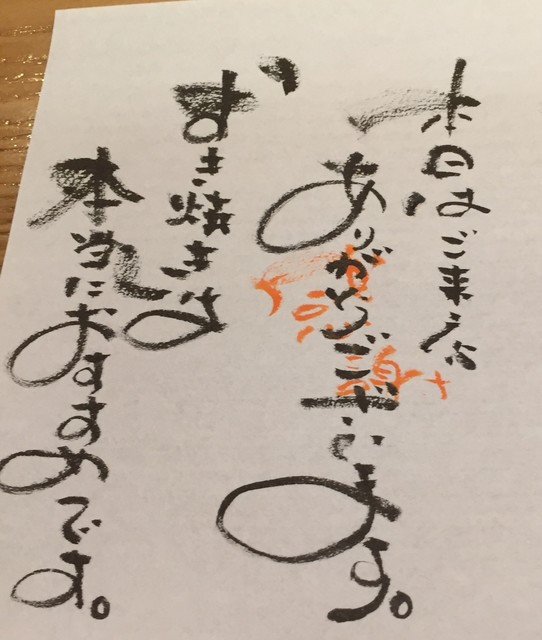 本日はご来店
ありがとうございます。
すき焼きは
本当におすすめです。
感謝